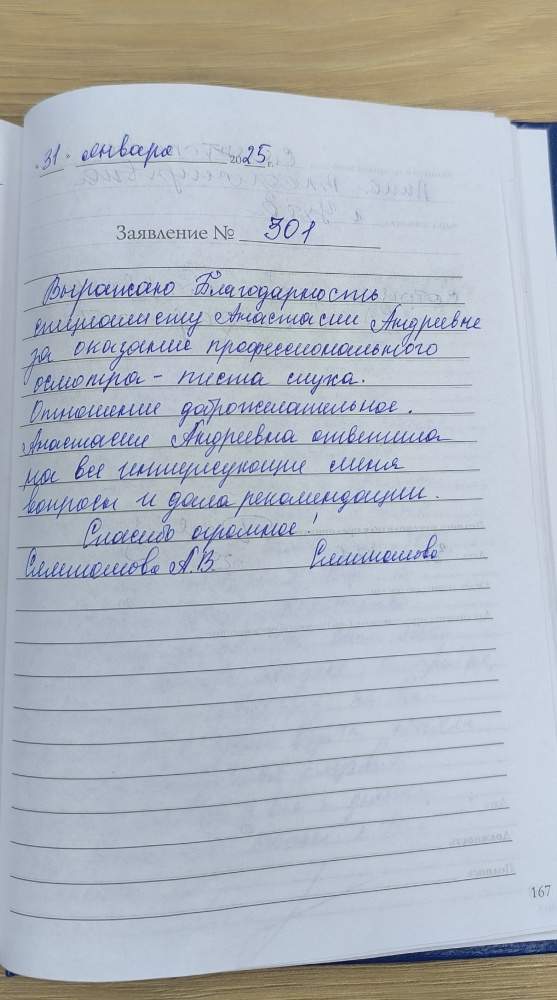 „31" января 2025 г.
Заявление № 301
Выражаю Благодарность
специалисту Анастасии Андреевне
за оказание профессионального
осмотра – теста слуха.
Отношение доброжелательное.
Анастасия Андреевна ответила
на все интересующие меня
вопросы и дала рекомендации.
Спасибо огромное!
А.В.
167